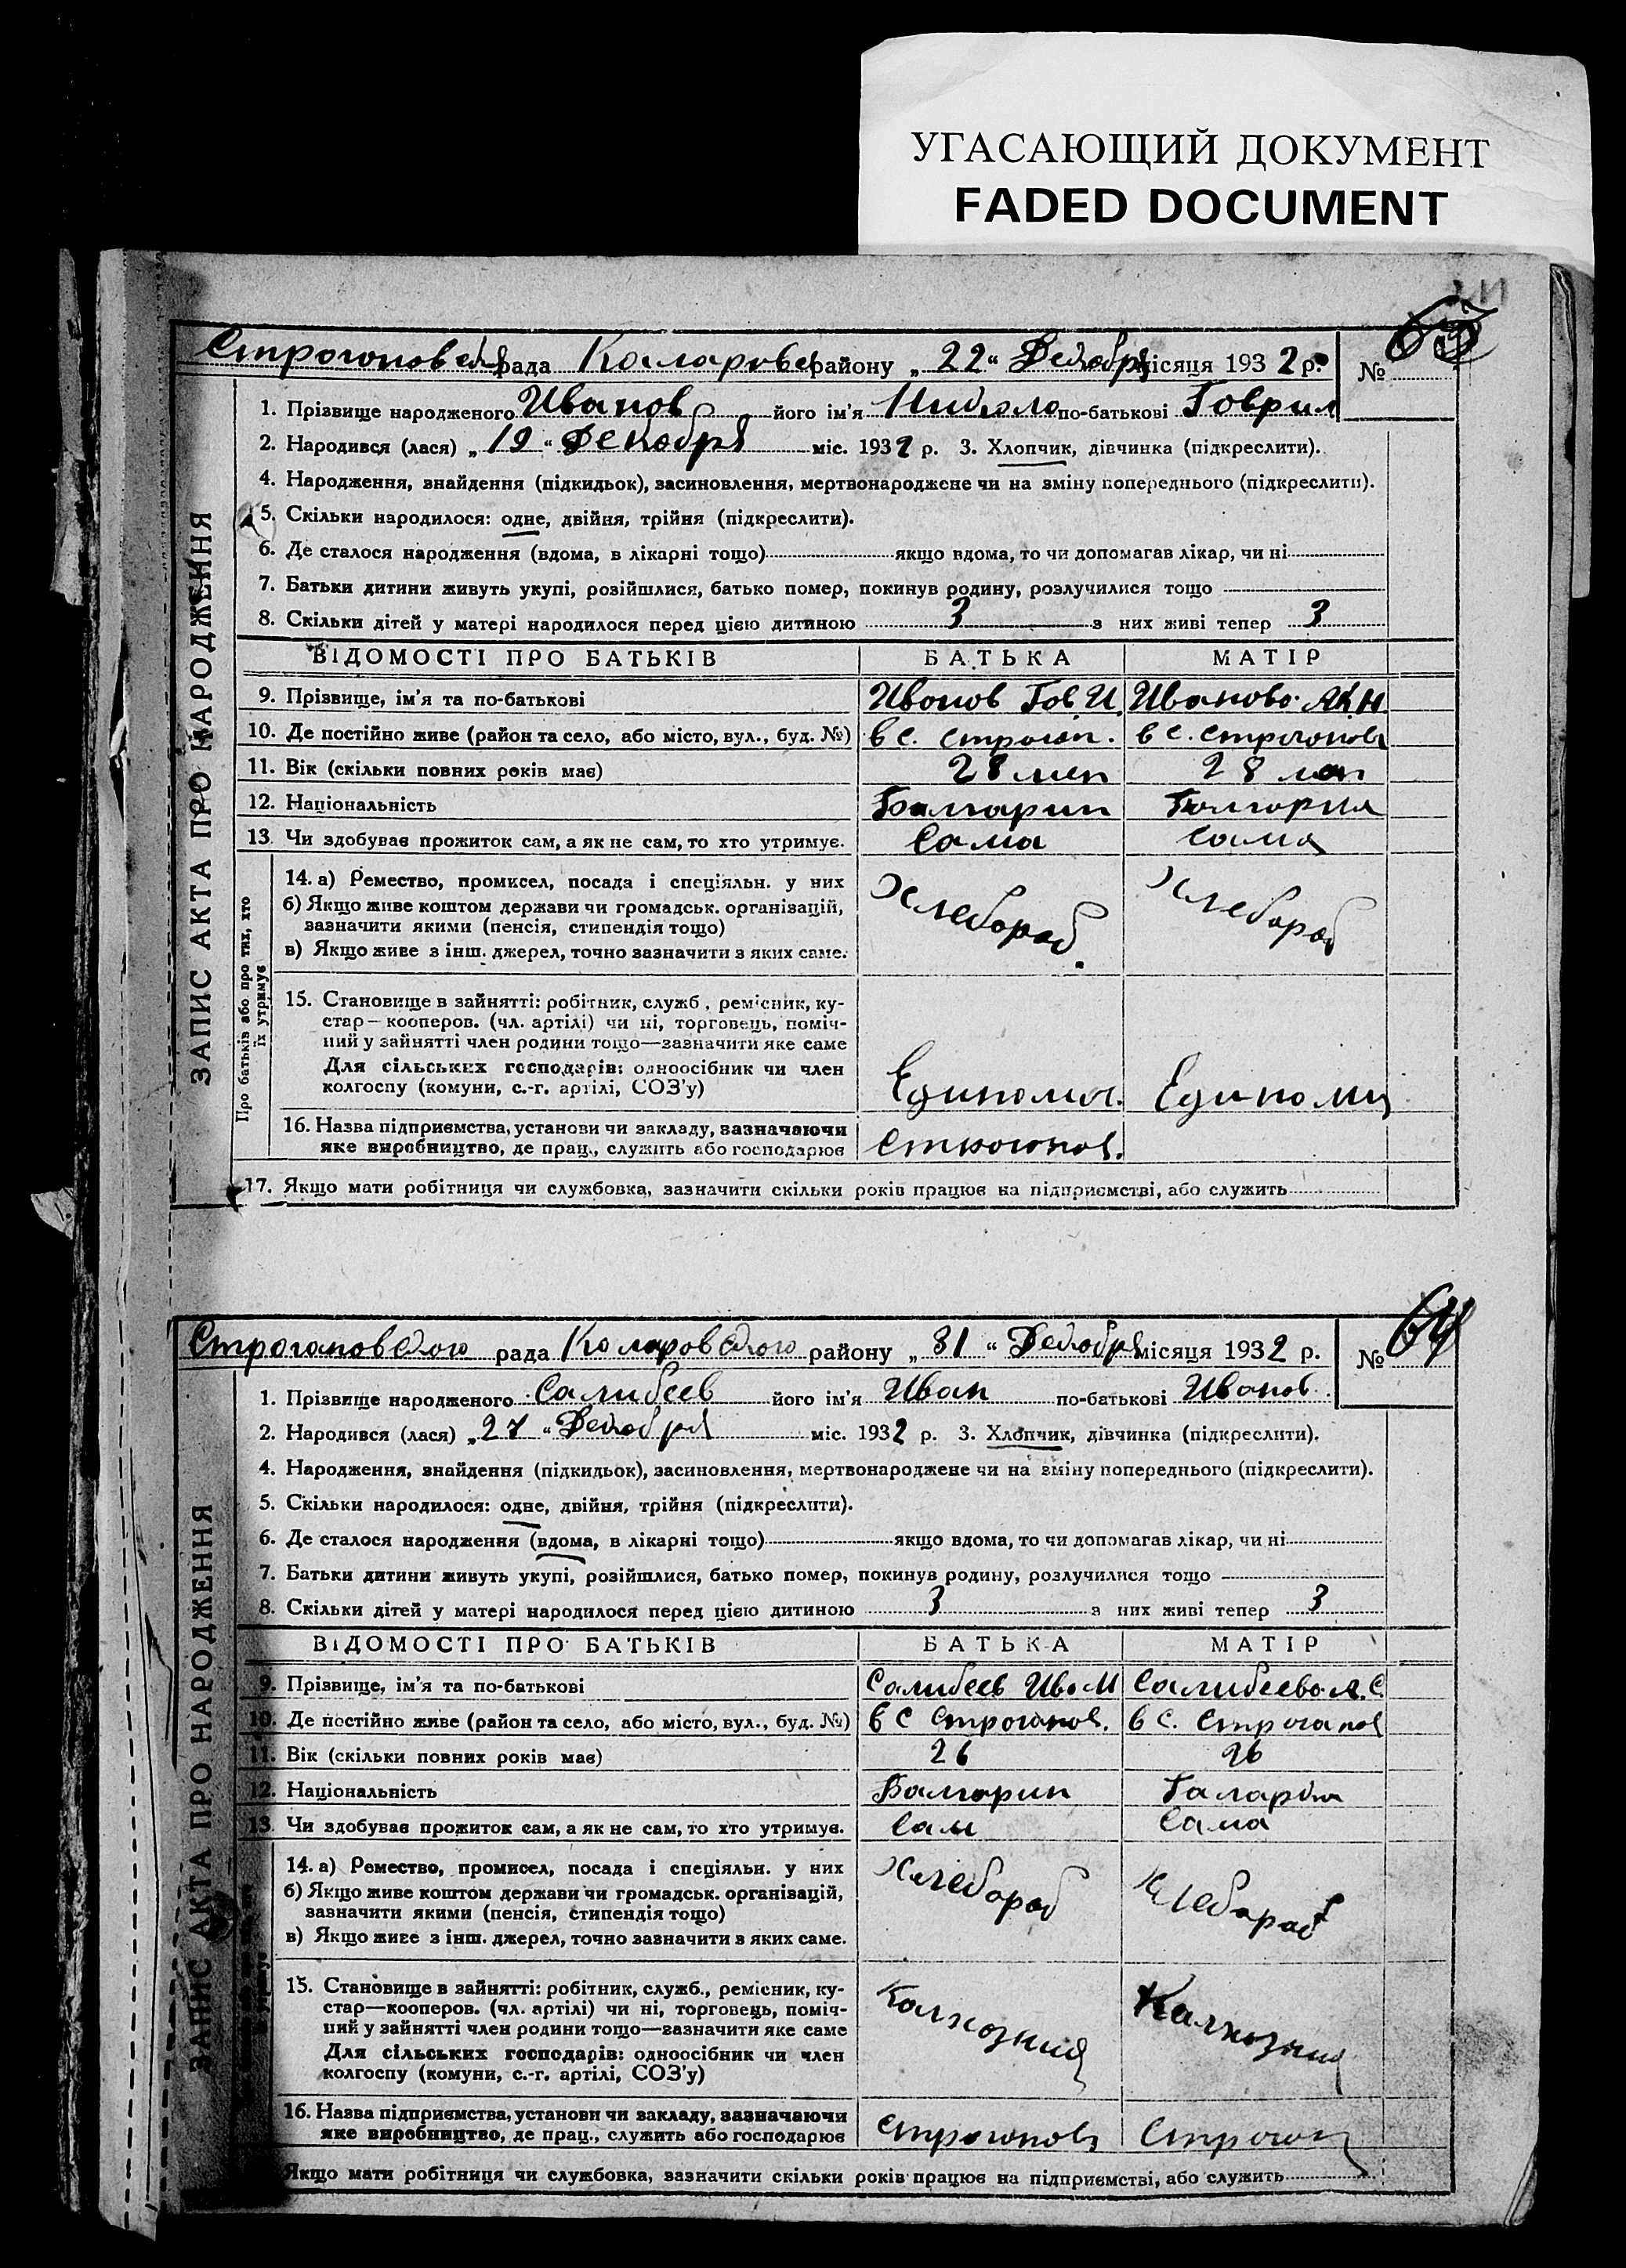 УГАСАЮЩИЙ ДОКУМЕНТ
FADED DOCUMENT
63
рада району „ 22 “ Декабря місяця 1932 р. №
1. Прізвище народженого Иванов його ім'я по-батькові Гаврил
2. Народився (лася) „ 19 “ Декабря міс. 1932 р. 3. Хлопчик, дівчинка (підкреслити).
4. Народження, знайдення (підкидьок), засиновлення, мертвонароджене чи на зміну попереднього (підкреслити).
5. Скільки народилося: одне, двійня, трійня (підкреслити).
6. Де сталося народження (вдома, в лікарні тощо) якщо вдома, то чи допомагав лікар, чи ні
7. Батьки дитини живуть укупі, розійшлися, батько помер, покинув родину, розлучилися тощо
8. Скільки дітей у матері народилося перед цією дитиною 3 з них живі тепер 3
ЗАПИС АКТА ПРО НАРОДЖЕННЯ
ВІДОМОСТІ ПРО БАТЬКІВ БАТЬКА МАТІР
9. Прізвище, ім'я та по-батькові Иванов Гав. И. Иванова Ак. Н.
10. Де постійно живе (район та село, або місто, вул., буд. №) в с. Строган. в с. Строганов
11. Вік (скільки повних років має) 28 лет 28 лет
12. Національність Болгарин
13. Чи здобуває прожиток сам, а як не сам, то хто утримує. Сама Сама
Про батьків або про тих, хто їх утримує
14. а) Ремество, промисел, посада і спеціяльн. у них Хлебороб Хлебороб
б) Якщо живе коштом держави чи громадськ. організацій,
зазначити якими (пенсія, стипендія тощо)
в) Якщо живе з інш. джерел, точно зазначити з яких саме.
15. Становище в зайнятті: робітник, служб., ремісник, ку-
стар—кооперов. (чл. артілі) чи ні, торговець, поміч-
ний у зайнятті член родини тощо—зазначити яке саме
Для сільських господарів: одноосібник чи член
колгоспу (комуни, с.-г. артілі, СОЗ'у)
16. Назва підприємства, установи чи закладу, зазначаючи
яке виробництво, де прац., служить або господарює Строганов.
17. Якщо мати робітниця чи службовка, зазначити скільки років працює на підприємстві, або служить
64
Строгановского рада Коларовского району „ 31 “ Декабря місяця 1932 р. №
1. Прізвище народженого Салибеев його ім'я Иван по-батькові Иванов.
2. Народився (лася) „ 27 “ Декабря міс. 1932 р. 3. Хлопчик, дівчинка (підкреслити).
4. Народження, знайдення (підкидьок), засиновлення, мертвонароджене чи на зміну попереднього (підкреслити).
5. Скільки народилося: одне, двійня, трійня (підкреслити).
6. Де сталося народження (вдома, в лікарні тощо) якщо вдома, то чи допомагав лікар, чи ні
7. Батьки дитини живуть укупі, розійшлися, батько помер, покинув родину, розлучилися тощо
8. Скільки дітей у матері народилося перед цією дитиною 3 з них живі тепер 3
ЗАПИС АКТА ПРО НАРОДЖЕННЯ
ВІДОМОСТІ ПРО БАТЬКІВ БАТЬКА МАТІР
9. Прізвище, ім'я та по-батькові Салибеев Ива М Салибеева А. С.
10. Де постійно живе (район та село, або місто, вул., буд. №) в с Строганов. в с. Строганов
11. Вік (скільки повних років має) 26 26
12. Національність Балгарин
13. Чи здобуває прожиток сам, а як не сам, то хто утримує. Сам Сама
14. а) Ремество, промисел, посада і спеціяльн. у них Хлебороб Хлебороб
б) Якщо живе коштом держави чи громадськ. організацій,
зазначити якими (пенсія, стипендія тощо)
в) Якщо живе з інш. джерел, точно зазначити з яких саме.
15. Становище в зайнятті: робітник, служб., ремісник, ку-
стар—кооперов. (чл. артілі) чи ні, торговець, поміч-
ний у зайнятті член родини тощо—зазначити яке саме
Для сільських господарів: одноосібник чи член
колгоспу (комуни, с.-г. артілі, СОЗ'у)
16. Назва підприємства, установи чи закладу, зазначаючи
яке виробництво, де прац., служить або господарює Строганов Строган
Якщо мати робітниця чи службовка, зазначити скільки років працює на підприємстві, або служить